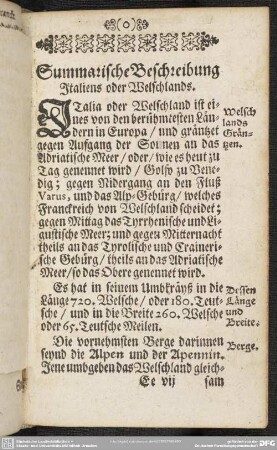 (o)
Summarische Beschreibung
Italiens oder Welschlands.
ITalia oder Welschland ist ei-
nes von den berühmesten Län-
dern in Europa / und gräntzet
gegen Aufgang der Sonnen an das
Adriatische Meer / oder / wie es heut zu
Tag genennet wird / Golfo zu Vene-
dig; gegen Nidergang an den Fluß
Varus, und das Alp-Gebürg / welches
Franckreich von Welschland scheidet;
gegen Mittag das Tyrrhenische und Li-
gustische Meer; und gegen Mitternacht
theils an das Tyrolische und Craineri-
sche Gebürg / theils an das Adriatische
Meer / so das Obere genennet wird.
Es hat in seinem Umbkräyß in die
Länge 720. Welsche / oder 180. Teut-
sche / und in die Breite 260. Welsche
oder 65. Teutsche Meilen.
Die vornehmsten Berge darinnen
seynd die Alpen und der Apennin.
Jene umbgeben das Welschland gleich-
Ee vij sam
Welsch
lands
Grän-
tzen.
Dessen
Länge
und
Breite.
Berge.